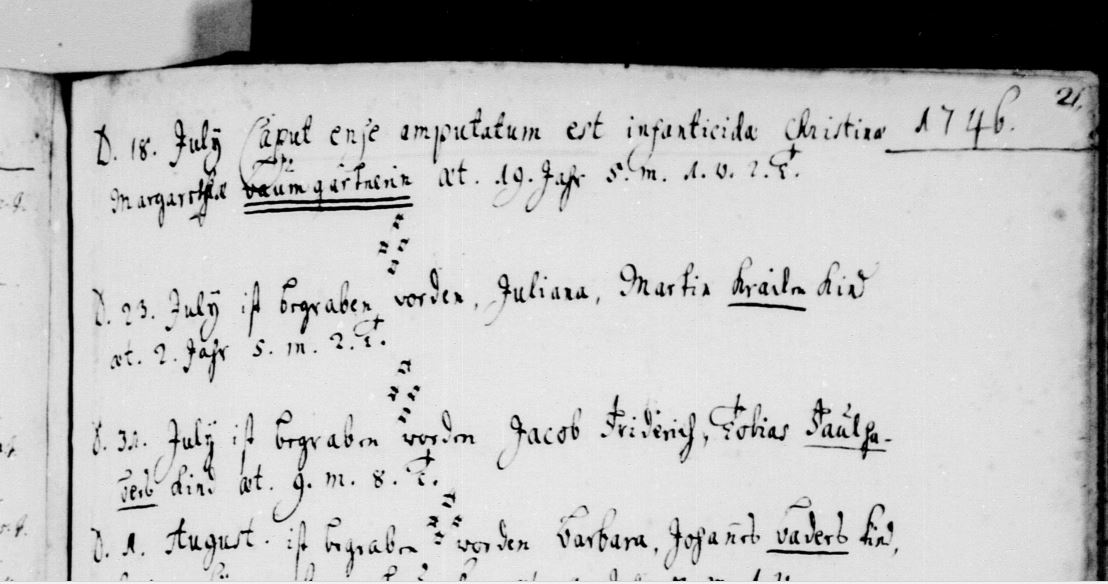 21.
D. 18. July Caput ense amputatum est infanticidæ Christinæ 1746.
Margarethæ baumgärtnerin æt. 19. Jahr 5. m. 1. v. 2. T.
D. 23. July ist begraben worden, Juliana, Martin Krailen Kind
æt. 2. Jahr 5. m. 2. T.
D. 31. July ist begraben worden Jacob Friderich, Tobias Faulha-
bers Kind æt. 9. m. 8. T.
D. 1. August. ist begraben worden Barbara, Johannes baders Kind,